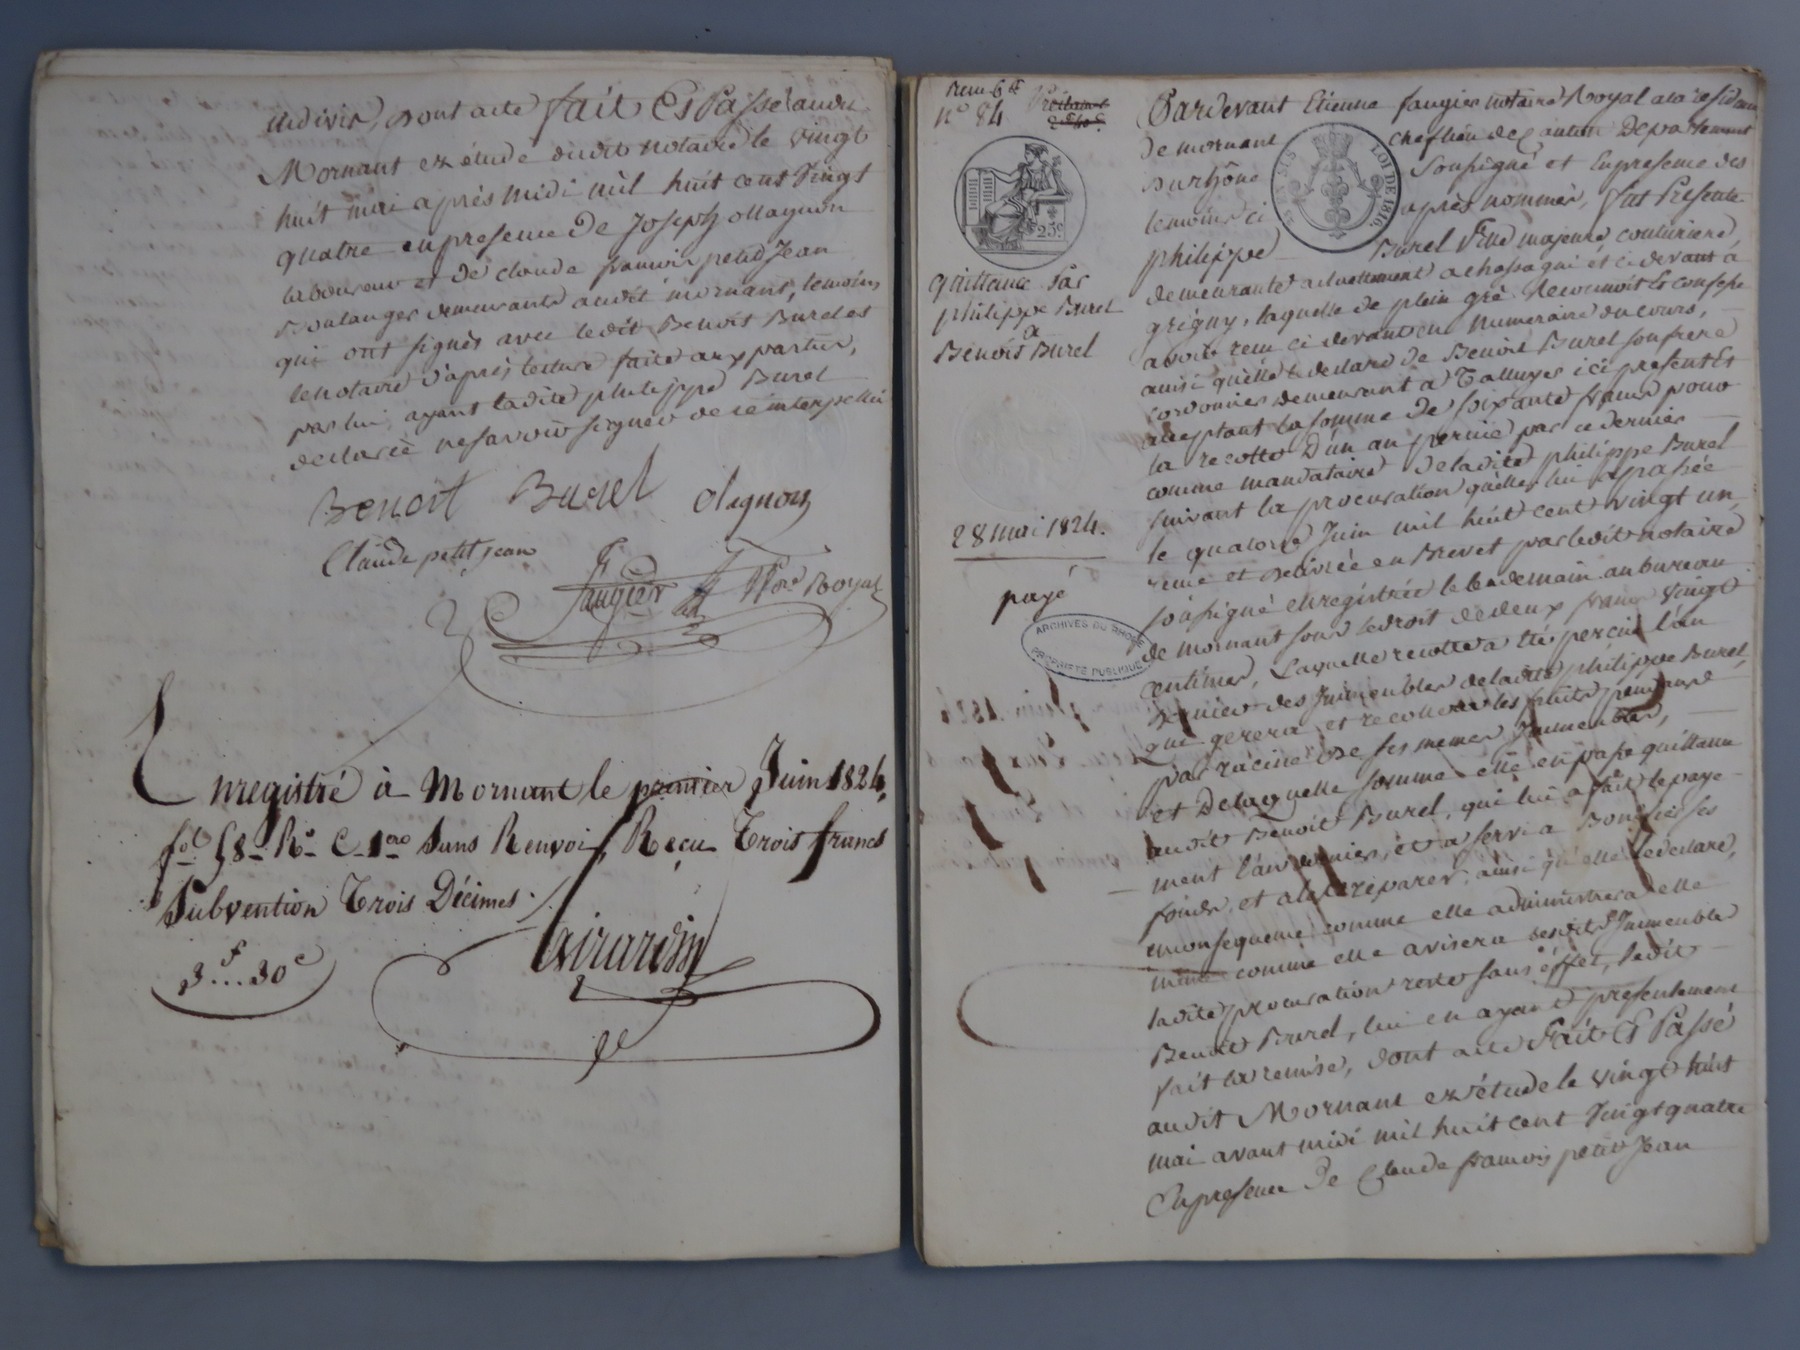 indivis, dont acte fait Et Passé audit
Mornant en étude dudit notaire le vingt
huit mai après midi mil huit cent vingt
quatre en presence de Joseph Magnon
laboureur et de claude francois petit Jean
Boulanger demeurants audit mornant, temoins
qui ont signés avec ledit Benoit Burel et
le notaire d'après lecture faite aux parties,
par lui, ayant ladite philippe Burel
declaré ne savoir signer de ce interpellée
Benoit Burel Magnon
Claude petit jean
faugier Nre Royal
Enregistré à Mornant le premier Juin 1824,
fol 58 Ro C 1ere Sans Renvoi, Reçu Trois francs
Subvention Trois Décimes.
Girardin
3f...30c
no 84
25c
EN SUS
LOI DE 1816.
quittance par
philippe Burel
à
Benoit Burel
28 mai 1824.
payé
ARCHIVES DU RHONE
PROPRIETE PUBLIQUE
Pardevant Etienne faugier notaire Royal a la residence
de mornant chef lieu de Canton Departement
du rhône Soussigné et En presence des
temoins ci après nommés, fut Presente
philippe Burel fille majeure couturiere,
demeurante actuellement a chassagni et ci devant à
grigny, laquelle de plein gré Reconnoit Et confesse
avoir recu ci devant en numeraire du cours,
ainsi quelle le declare de Benoit Burel son frere
cordonnier demeurant a Talluyes ici present Et
acceptant la somme de soixante francs pour
la recolte D'un an percue par ce dernier
comme mandataire de ladite philippe Burel
suivant la procuration quelle lui a passée
le quatorze Juin mil huit cent vingt un,
reçue et delivrée en Brevet par ledit notaire
soussigné enregistrée le lendemain au bureau
de mornant sous le droit de deux francs vingt
centimes, Laquelle recolte a été percue l'an
dernier des Immeubles de ladite philippe Burel,
qui gerera et recoltera les fruits pendants
par racine De ses memes Immeubles,
et De laquelle somme elle en passe quittance
audit Benoit Burel, qui lui a fait le paye-
ment l'an dernier, et a servi a Bonifier ses
fonds et a les reparer, ainsi qu'elle le declare,
en consequence comme elle administrera elle
même comme elle avisera sesdits Immeubles
ladite procuration reste sans éffet, ledit
Benoit Burel, lui en ayant presentement
fait la remise, dont acte Fait Et Passé
audit Mornant en étude le vingt huit
mai avant midi mil huit cent vingt quatre
En presence De Claude francois petit Jean